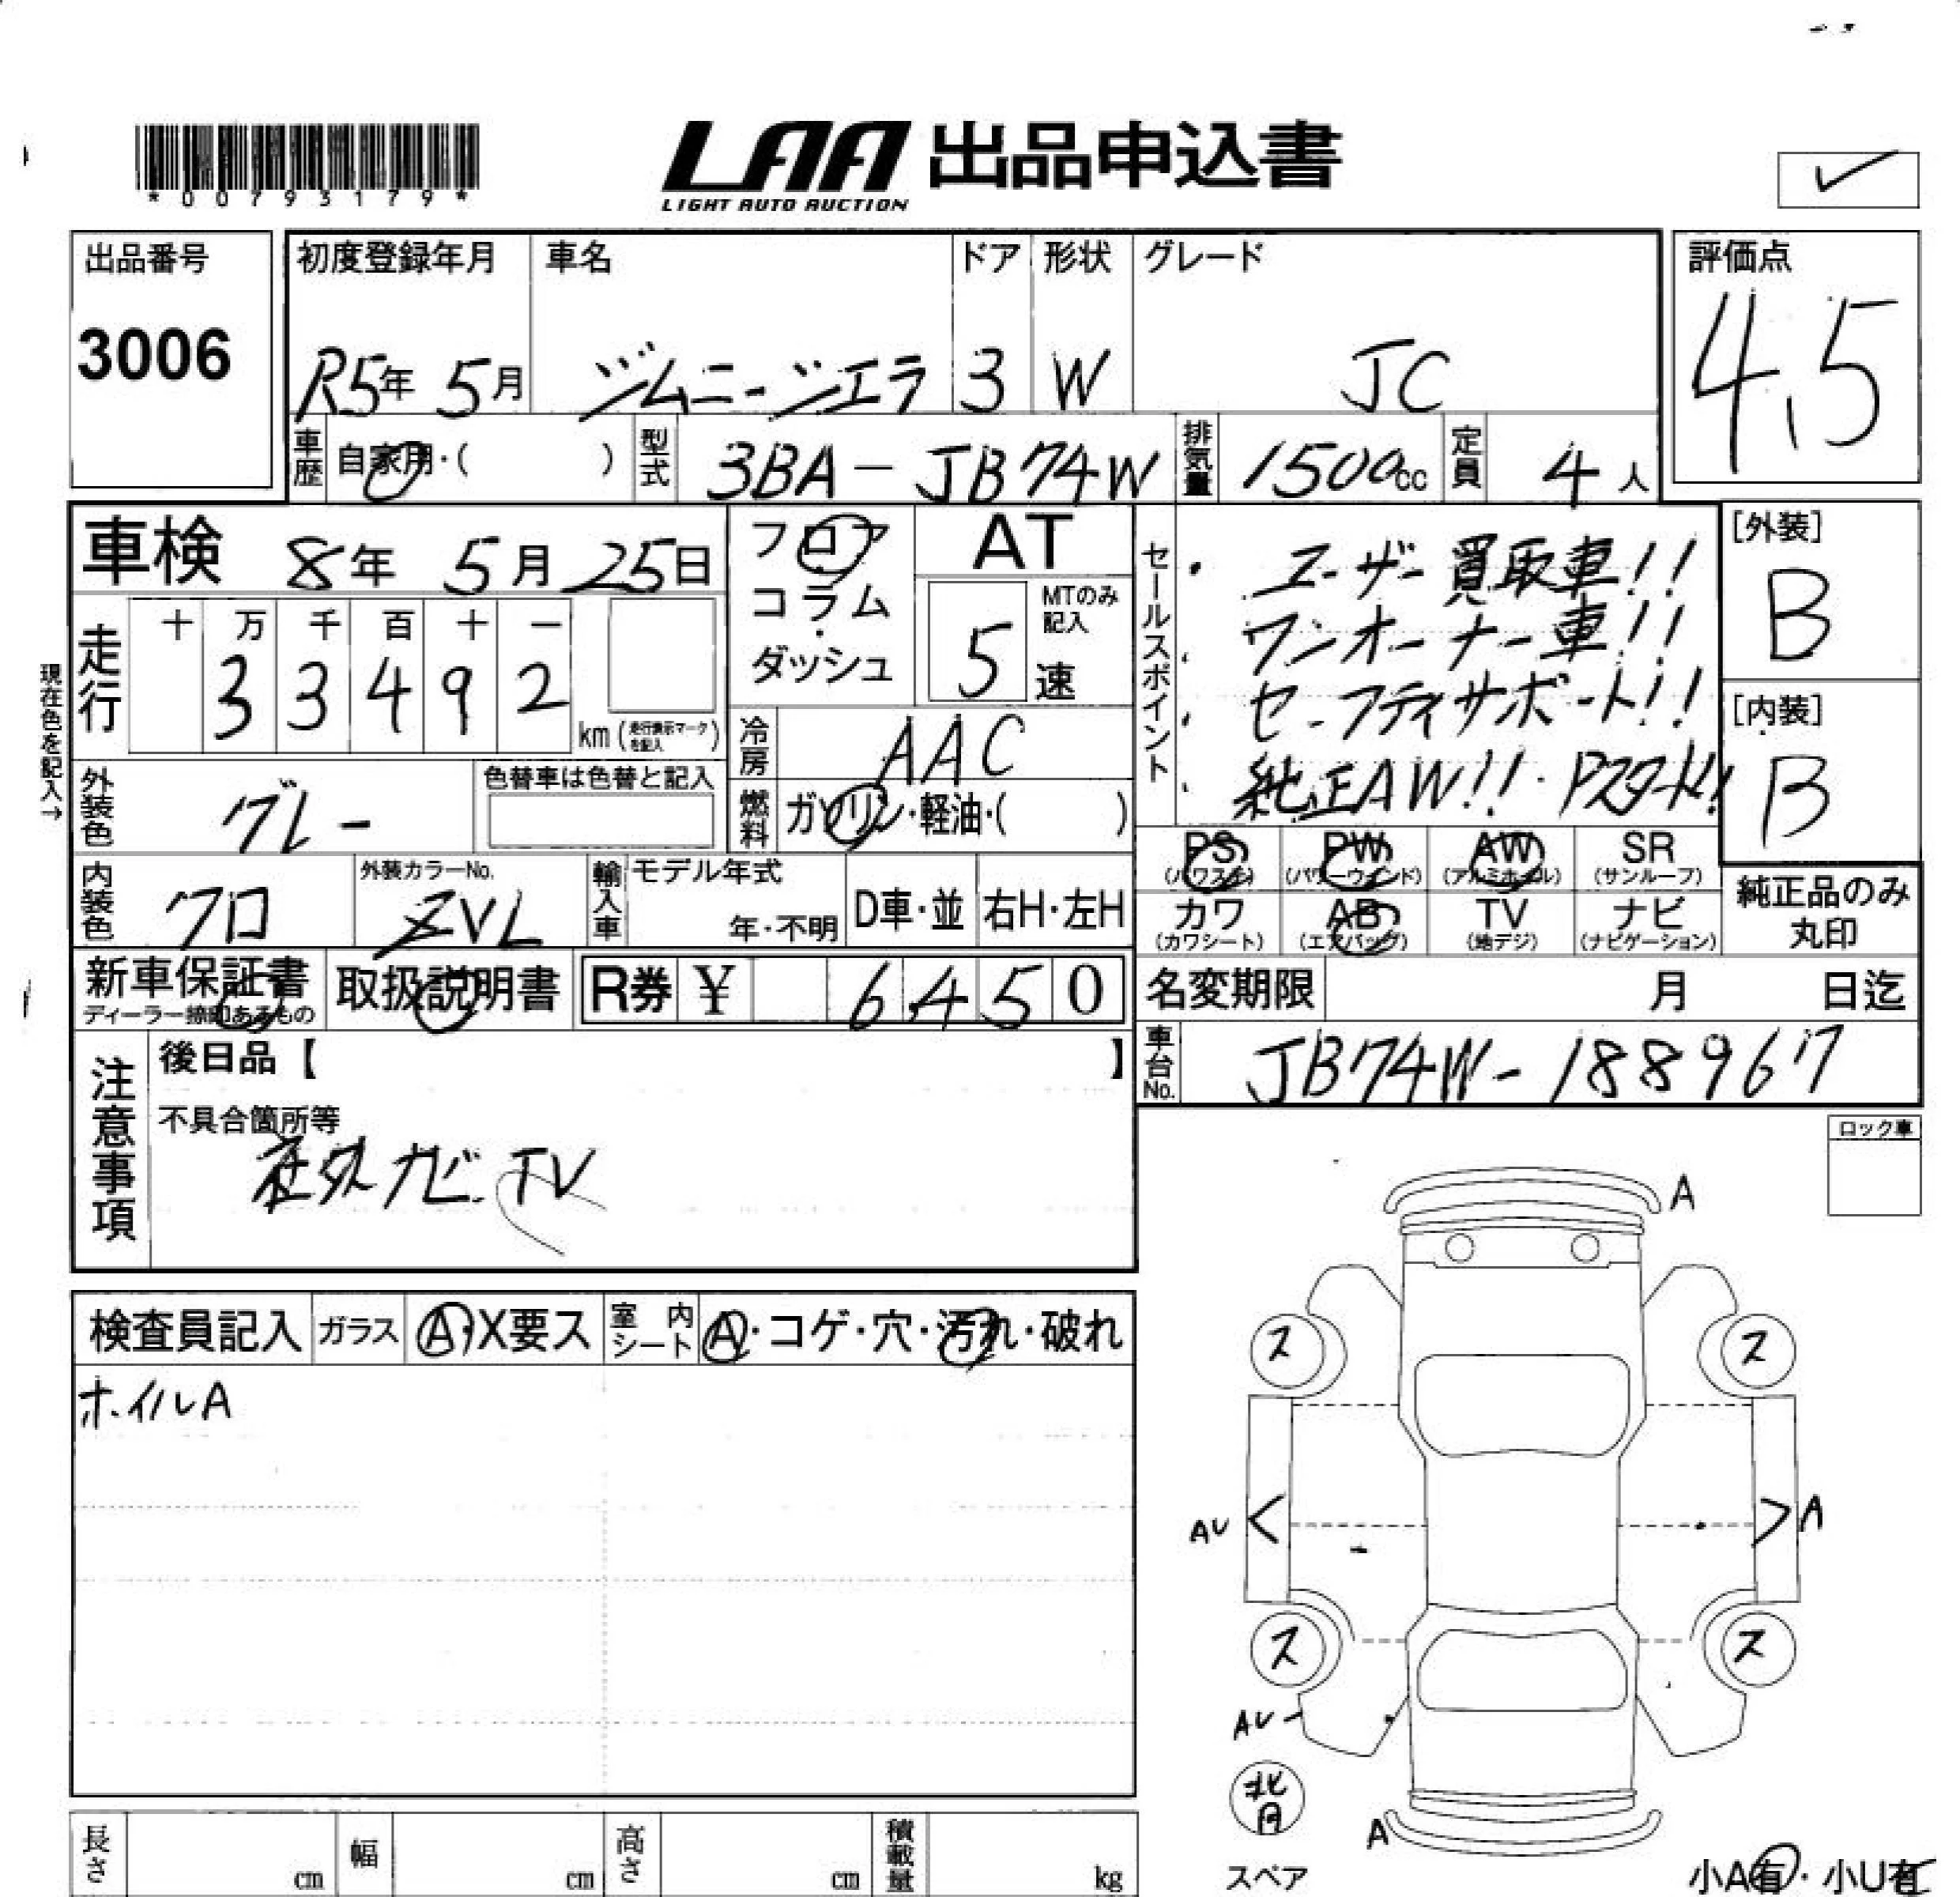 *00793179*
LAA 出品申込書
LIGHT AUTO AUCTION
出品番号 初度登録年月 車名 ドア 形状 グレード 評価点
3006 R5年 5月 ジムニーシエラ 3 W JC 4.5
車歴 自家用・( ) 型式 3BA-JB74W 排気量 1500cc 定員 4人
車検 8年 5月 25日 フロア・コラム・ダッシュ AT
5速 MTのみ記入
現在色を記入→
走行 十 万 千 百 十 一
3 3 4 9 2 km (走行表示マークを記入)
冷房 AAC
外装色 グレー 色替車は色替と記入
燃料 ガソリン・軽油・( )
内装色 クロ 外装カラーNo. ZVL 輸入車 モデル年式 年・不明 D車・並 右H・左H
新車保証書 取扱説明書 R券 ¥ 6,450
ディーラー捺印あるもの
セールスポイント
・ユーザー買取車!!
・ワンオーナー車!!
・セーフティサポート!!
・純正AW!!・Pスタート!
[外装]
B
[内装]
B
PS (パワステ) PW (パワーウインド) AW (アルミホイール) SR (サンルーフ)
カワ (カワシート) AB (エアバッグ) TV (地デジ) ナビ (ナビゲーション)
純正品のみ丸印
名変期限 月 日迄
車台No. JB74W-188967
注意事項 後日品【 】
不具合箇所等
社外ナビ.TV
ロック車
検査員記入 ガラス A・X要ス 室内シート A・コゲ・穴・汚れ・破れ
ホイルA
A
ス ス
AU < > A
ス ス
AU
A
スペア
小A有・小U有
長さ cm 幅 cm 高さ cm 積載量 kg